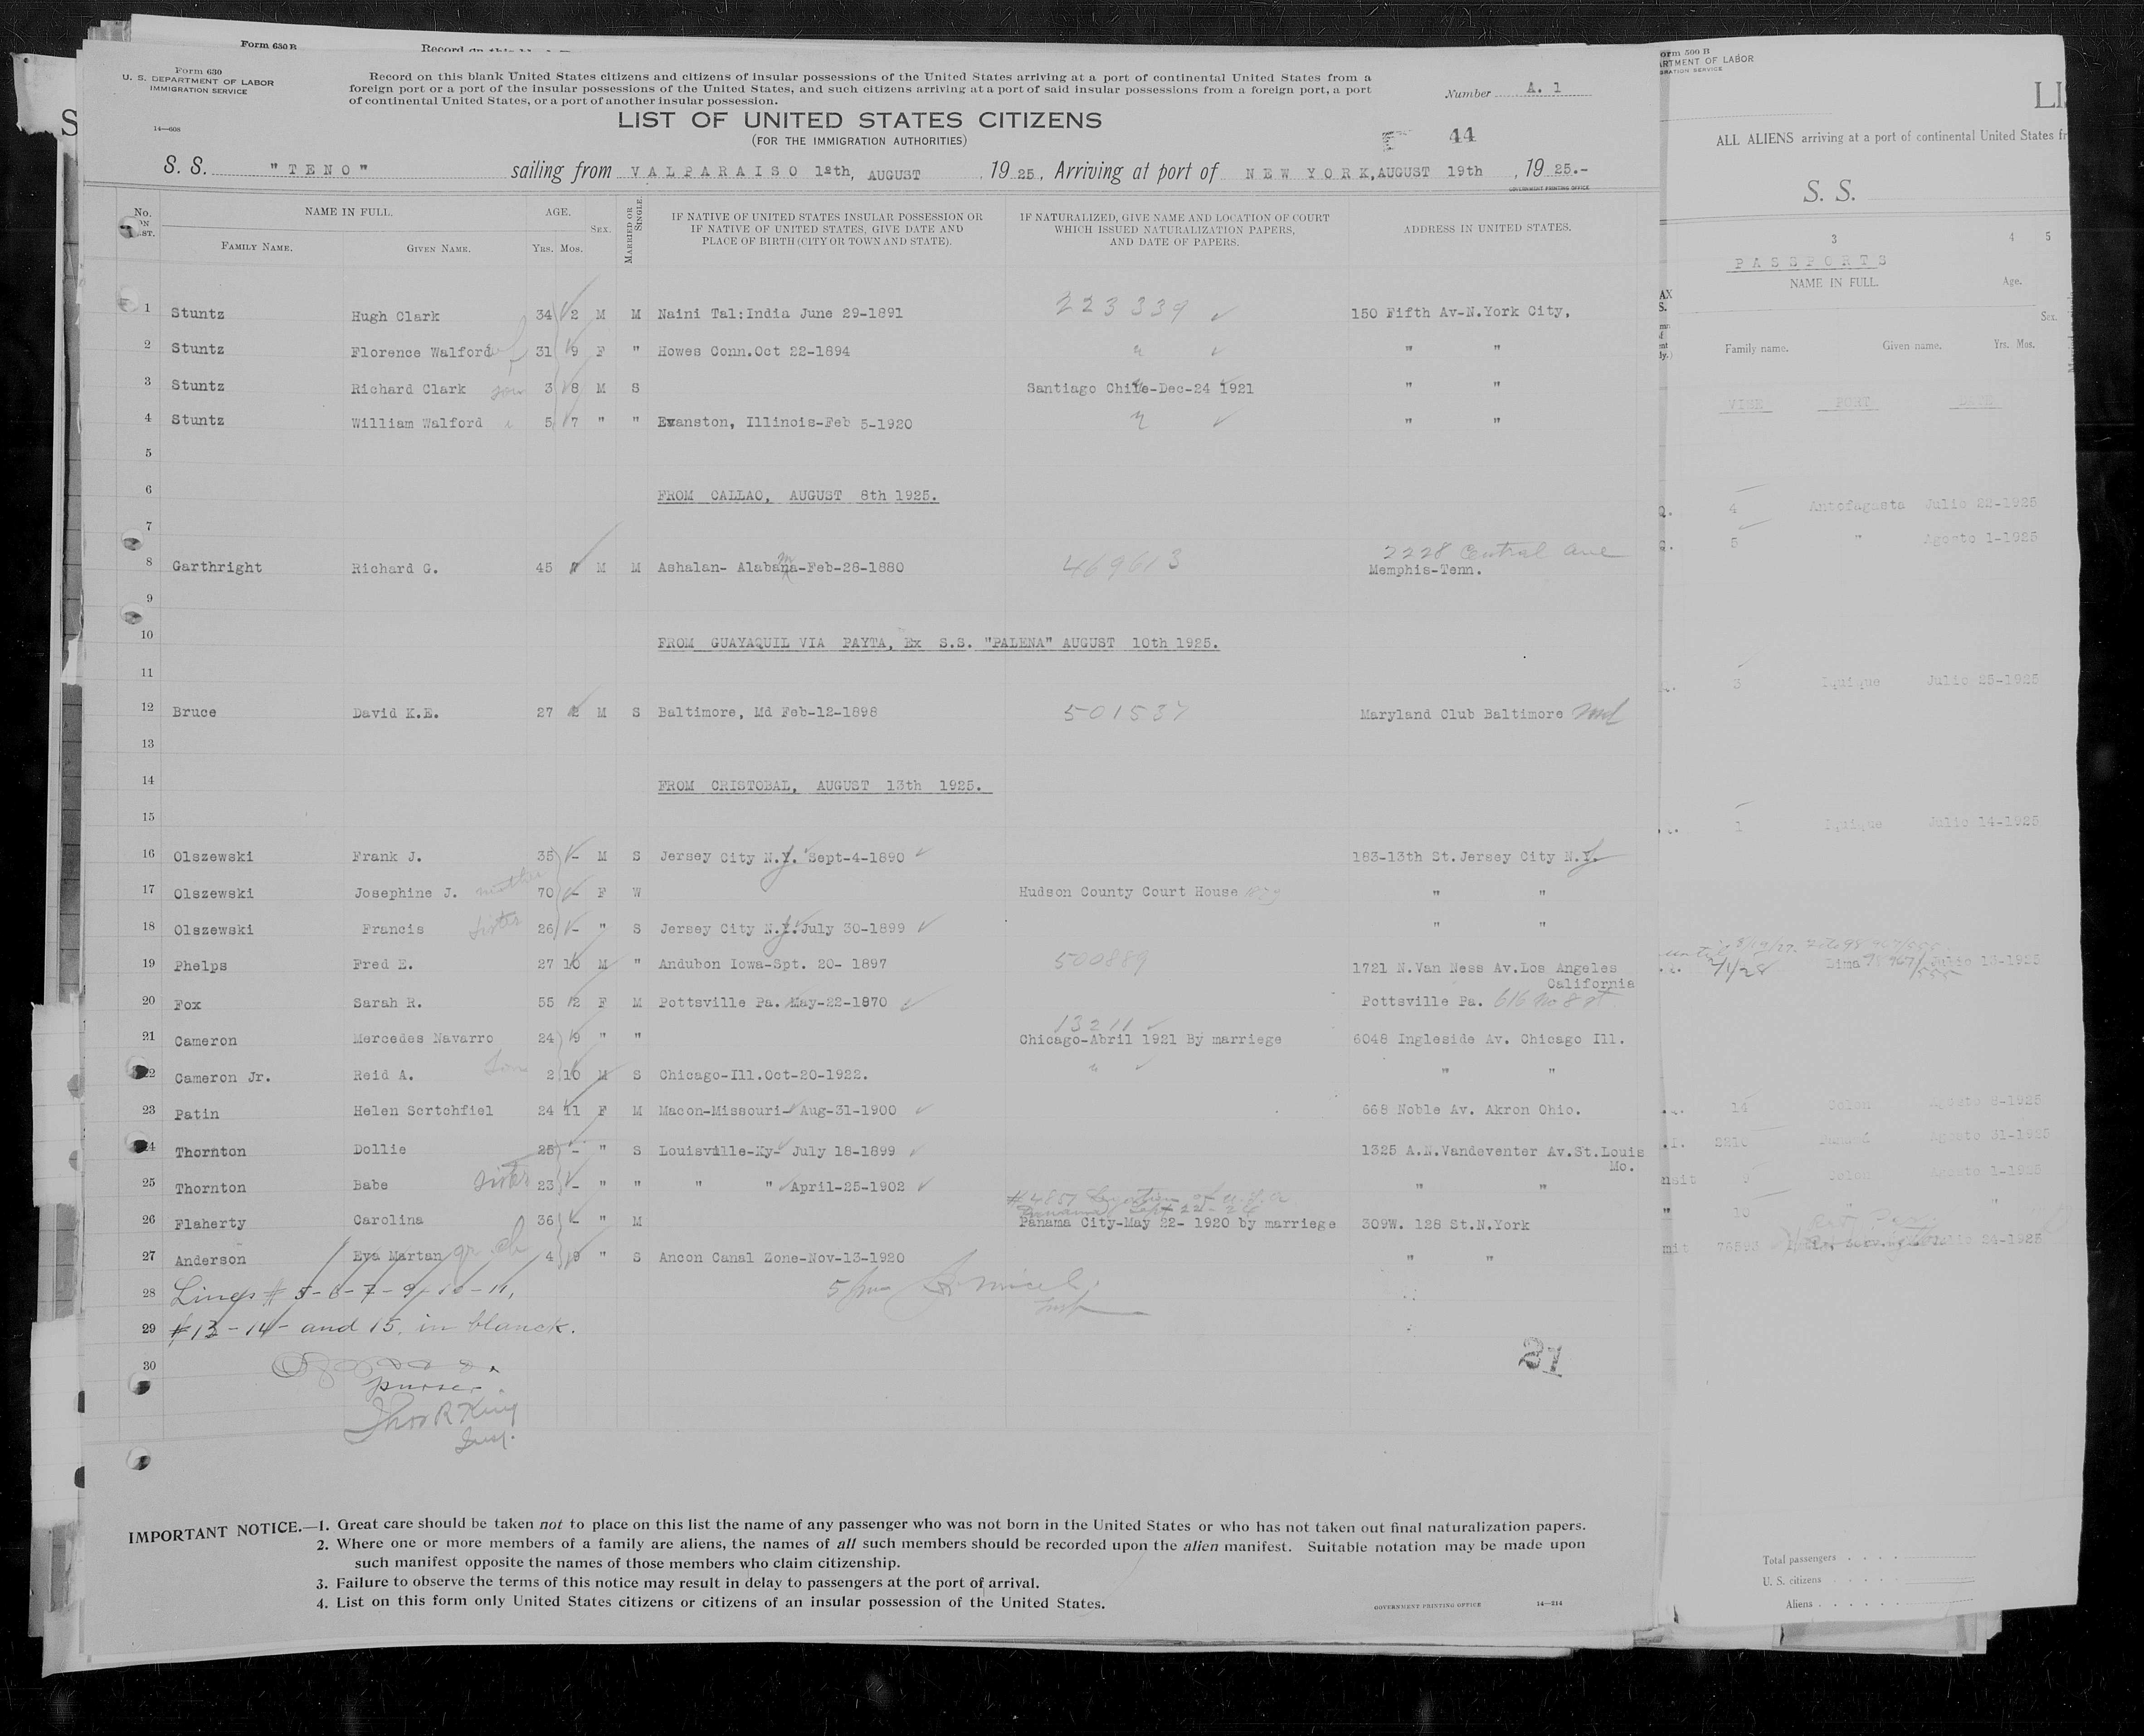 Form 630 B
Record on this
Form 630
U. S. DEPARTMENT OF LABOR
IMMIGRATION SERVICE
14—608
Record on this blank United States citizens and citizens of insular possessions of the United States arriving at a port of continental United States from a
foreign port or a port of the insular possessions of the United States, and such citizens arriving at a port of said insular possessions from a foreign port, a port
of continental United States, or a port of another insular possession.
Number A. 1
LIST OF UNITED STATES CITIZENS
(FOR THE IMMIGRATION AUTHORITIES)
44
S. S. "TENO" sailing from VALPARAISO 1sth, AUGUST , 1925, Arriving at port of NEW YORK, AUGUST 19th , 1925.-
GOVERNMENT PRINTING OFFICE
No. ON LIST. NAME IN FULL. AGE. SEX. MARRIED OR SINGLE. IF NATIVE OF UNITED STATES INSULAR POSSESSION OR IF NATIVE OF UNITED STATES, GIVE DATE AND PLACE OF BIRTH (CITY OR TOWN AND STATE). IF NATURALIZED, GIVE NAME AND LOCATION OF COURT WHICH ISSUED NATURALIZATION PAPERS, AND DATE OF PAPERS. ADDRESS IN UNITED STATES.
FAMILY NAME. GIVEN NAME. Yrs. Mos.
1 Stuntz Hugh Clark 34 2 M M Naini Tal:India June 29-1891 223339 150 Fifth Av-N.York City,
2 Stuntz Florence Walford 31 9 F " Howes Conn.Oct 22-1894 " " "
3 Stuntz Richard Clark son 3 8 M S Santiago Chile-Dec-24 1921 " "
4 Stuntz William Walford 5 7 " " Evanston, Illinois-Feb 5-1920 " " "
5
6 FROM CALLAO, AUGUST 8th 1925.
7
8 Garthright Richard G. 45 M M Ashalan- Alabama-Feb-28-1880 469613 2228 Central Ave
Memphis-Tenn.
9
10 FROM GUAYAQUIL VIA PAYTA, Ex S.S. "PALENA" AUGUST 10th 1925.
11
12 Bruce David K.E. 27 M S Baltimore, Md Feb-12-1898 501537 Maryland Club Baltimore Md
13
14 FROM CRISTOBAL, AUGUST 13th 1925.
15
16 Olszewski Frank J. 35 - M S Jersey City N.J. Sept-4-1890 183-13th St.Jersey City N.J.
17 Olszewski Josephine J. mother 70 - F W Hudson County Court House " "
18 Olszewski Francis sister 26 - " S Jersey City N.J. July 30-1899 " "
19 Phelps Fred E. 27 10 M " Andubon Iowa-Spt. 20- 1897 500889 1721 N.Van Ness Av.Los Angeles
California
20 Fox Sarah R. 55 2 F M Pottsville Pa. May-22-1870 Pottsville Pa. 616 No 8 st
21 Cameron Mercedes Navarro 24 9 " " 13211 Chicago-Abril 1921 By marriege 6048 Ingleside Av. Chicago Ill.
22 Cameron Jr. Reid A. son 2 10 M S Chicago-Ill.Oct-20-1922. " " "
23 Patin Helen Scrtchfiel 24 11 F M Macon-Missouri- Aug-31-1900 668 Noble Av. Akron Ohio.
24 Thornton Dollie 25 - " S Louisville-Ky- July 18-1899 1325 A.N.Vandeventer Av.St.Louis
Mo.
25 Thornton Babe sister 23 - " " " " April-25-1902 " "
26 Flaherty Carolina 36 - " M Panama City-May 22- 1920 by marriege 309W. 128 St.N.York
27 Anderson Eva Martan 4 9 " S Ancon Canal Zone-Nov-13-1920 " "
28 Lines # 5-6-7-9-10-11,
29 #13-14- and 15. in blanck.
30
purser.
Thos R King
Insp.
21
IMPORTANT NOTICE.—1. Great care should be taken not to place on this list the name of any passenger who was not born in the United States or who has not taken out final naturalization papers.
2. Where one or more members of a family are aliens, the names of all such members should be recorded upon the alien manifest. Suitable notation may be made upon
such manifest opposite the names of those members who claim citizenship.
3. Failure to observe the terms of this notice may result in delay to passengers at the port of arrival.
4. List on this form only United States citizens or citizens of an insular possession of the United States.
GOVERNMENT PRINTING OFFICE 14—214
Form 500 B
ARTMENT OF LABOR
GRATION SERVICE
LI
ALL ALIENS arriving at a port of continental United States fr
S. S.
3 4 5
PASSPORTS
NAME IN FULL. Age. Sex.
Family name. Given name. Yrs. Mos.
VISE PORT DATE
4 Antofagasta Julio 22-1925
5 " Agosto 1-1925
3 Iquique Julio 25-1925
1 Iquique Julio 14-1925
Lima Julio 13-1925
14 Colon Agosto 8-1925
Panama Agosto 31-1925
Colon Agosto 1-1925
10 " "
76593 Julio 24-1925
Total passengers
U. S. citizens
Aliens